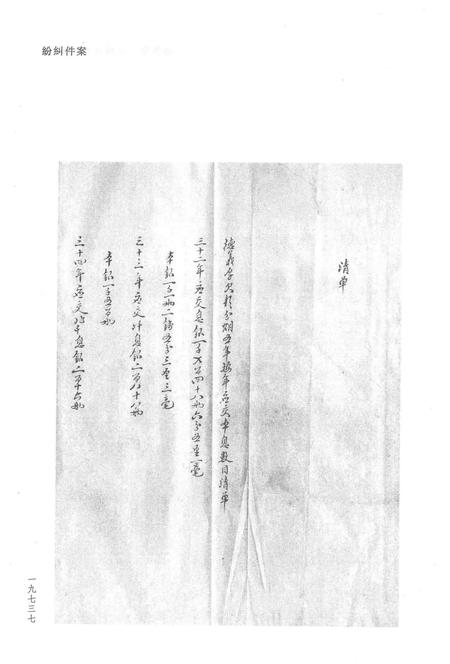 紛糾件案
清單
德義字欠於分烟五年按年應交本息數目清單
三十二年應交息銀一千九百四十八兩六分五厘一毫
本銀一千一兩二錢五分三厘三毫
三十三年應交六千息銀二百八十八兩
本銀一千五百兩
三十四年應交六千息銀二百十六兩
一九七三七